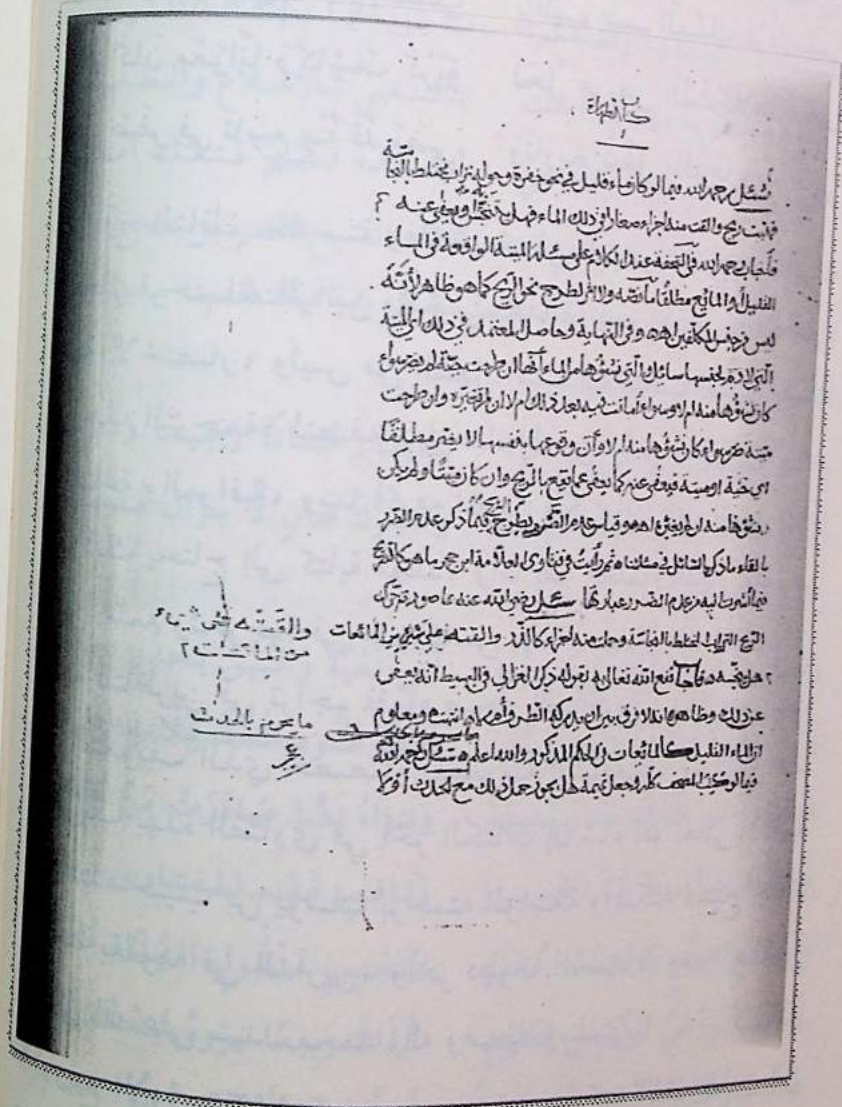 كتاب الطهارة
سئل رحمه الله فيما لو كان ماء قليل في نحو حفرة وحوله تراب مختلط بالنجاسة
فهبت ريح والقت منه اجزاء صغارا في ذلك الماء فهل يتنجس او يعفى عنه ؟
فأجاب رحمه الله في التحفة عند الكلام على مسئلة الميتة الواقعة في الماء
القليل او المائع مطلقا ما نصه ولا اثر لطرح نحو الريح كما هو ظاهر لأنه
ليس من جنس المكلفين اهـ وفي النهاية وحاصل المعتمد في ذلك اي الميتة
التي لا دم لجنسها سائل والتي نشؤها من الماء أنها ان طرحت حية لم يضر سواء
كان نشؤها منه ام لا وسواء أماتت فيه بعد ذلك ام لا ان لم تغيره وان طرحت
ميتة ضر سواء كان نشؤها منه ام لا وأن وقوعها بنفسها لا يضر مطلقا
اي حية او ميتة فيعفى عنه كما يعفى عما يقع بالريح وان كان ميتا ولم يكن
نشؤها منه ان لم يغير اهـ وقياس عدم الضرر بطرح الريح فيما ذكر عدم الضرر
بالقاء ما ذكره السائل في مسئلتنا ثم رأيت في فتاوى العلامة ابن حجر ما هو كالصريح
فيما أشرت اليه من عدم الضرر عبارتها سئل رضي الله عنه عما صورته تحرك
الريح التراب المختلط بالنجاسة وحملت منه اجزاء كالذر والقته على شيء من المائعات
هل ينجسه فأجاب نفع الله تعالى به بقوله ذكر الغزالي في البسيط انه يعفى
عن ذلك وظاهره انه لا فرق بين ان يدركه الطرف أم لا انتهت ومعلوم
ان الماء القليل كالمائعات في الحكم المذكور والله اعلم سئل رحمه الله
فيما لو كتب المصحف كله وجعل تميمة هل يجوز حمل ذلك مع الحدث أو لا
والقته على شيء
من المائعات
ما يحرم بالحدث